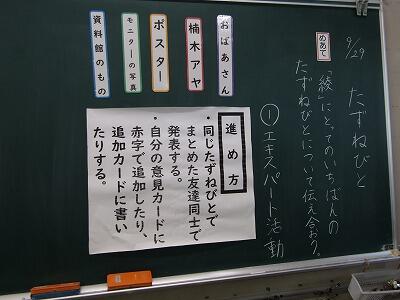 9/29 たずねびと
めあて
「綾」にとってのいちばんの
たずねびとについて伝え合おう。
①エキスパート活動
おばあさん
楠木アヤ
ポスター
モニターの写真
資料館のもの
進め方
・同じたずねびとで
まとめた友達同士で
発表する。
・自分の意見カードに
赤字で追加したり、
追加カードに書い
たりする。